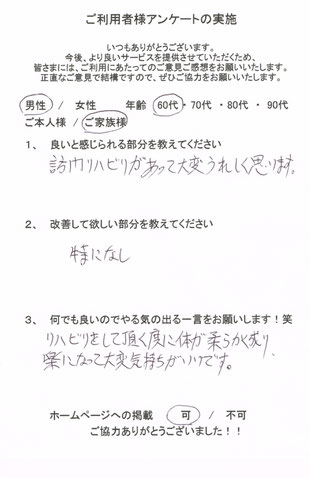 ご利用者様アンケートの実施
いつもありがとうございます。
今後、より良いサービスを提供させていただくため、
皆さまには、ご利用にあたってのご意見ご感想をお願いいたします。
正直なご意見で結構ですので、ぜひご協力をお願いいたします。
男性 / 女性 年齢 60代・70代・80代・90代
ご本人様 / ご家族様
1、 良いと感じられる部分を教えてください
訪問リハビリがあって大変うれしく思います。
2、 改善して欲しい部分を教えてください
特になし
3、 何でも良いのでやる気の出る一言をお願いします！笑
リハビリをして頂く度に体が柔らかく成り
楽になって大変気持ちがいいです。
ホームページへの掲載 可 / 不可
ご協力ありがとうございました！！